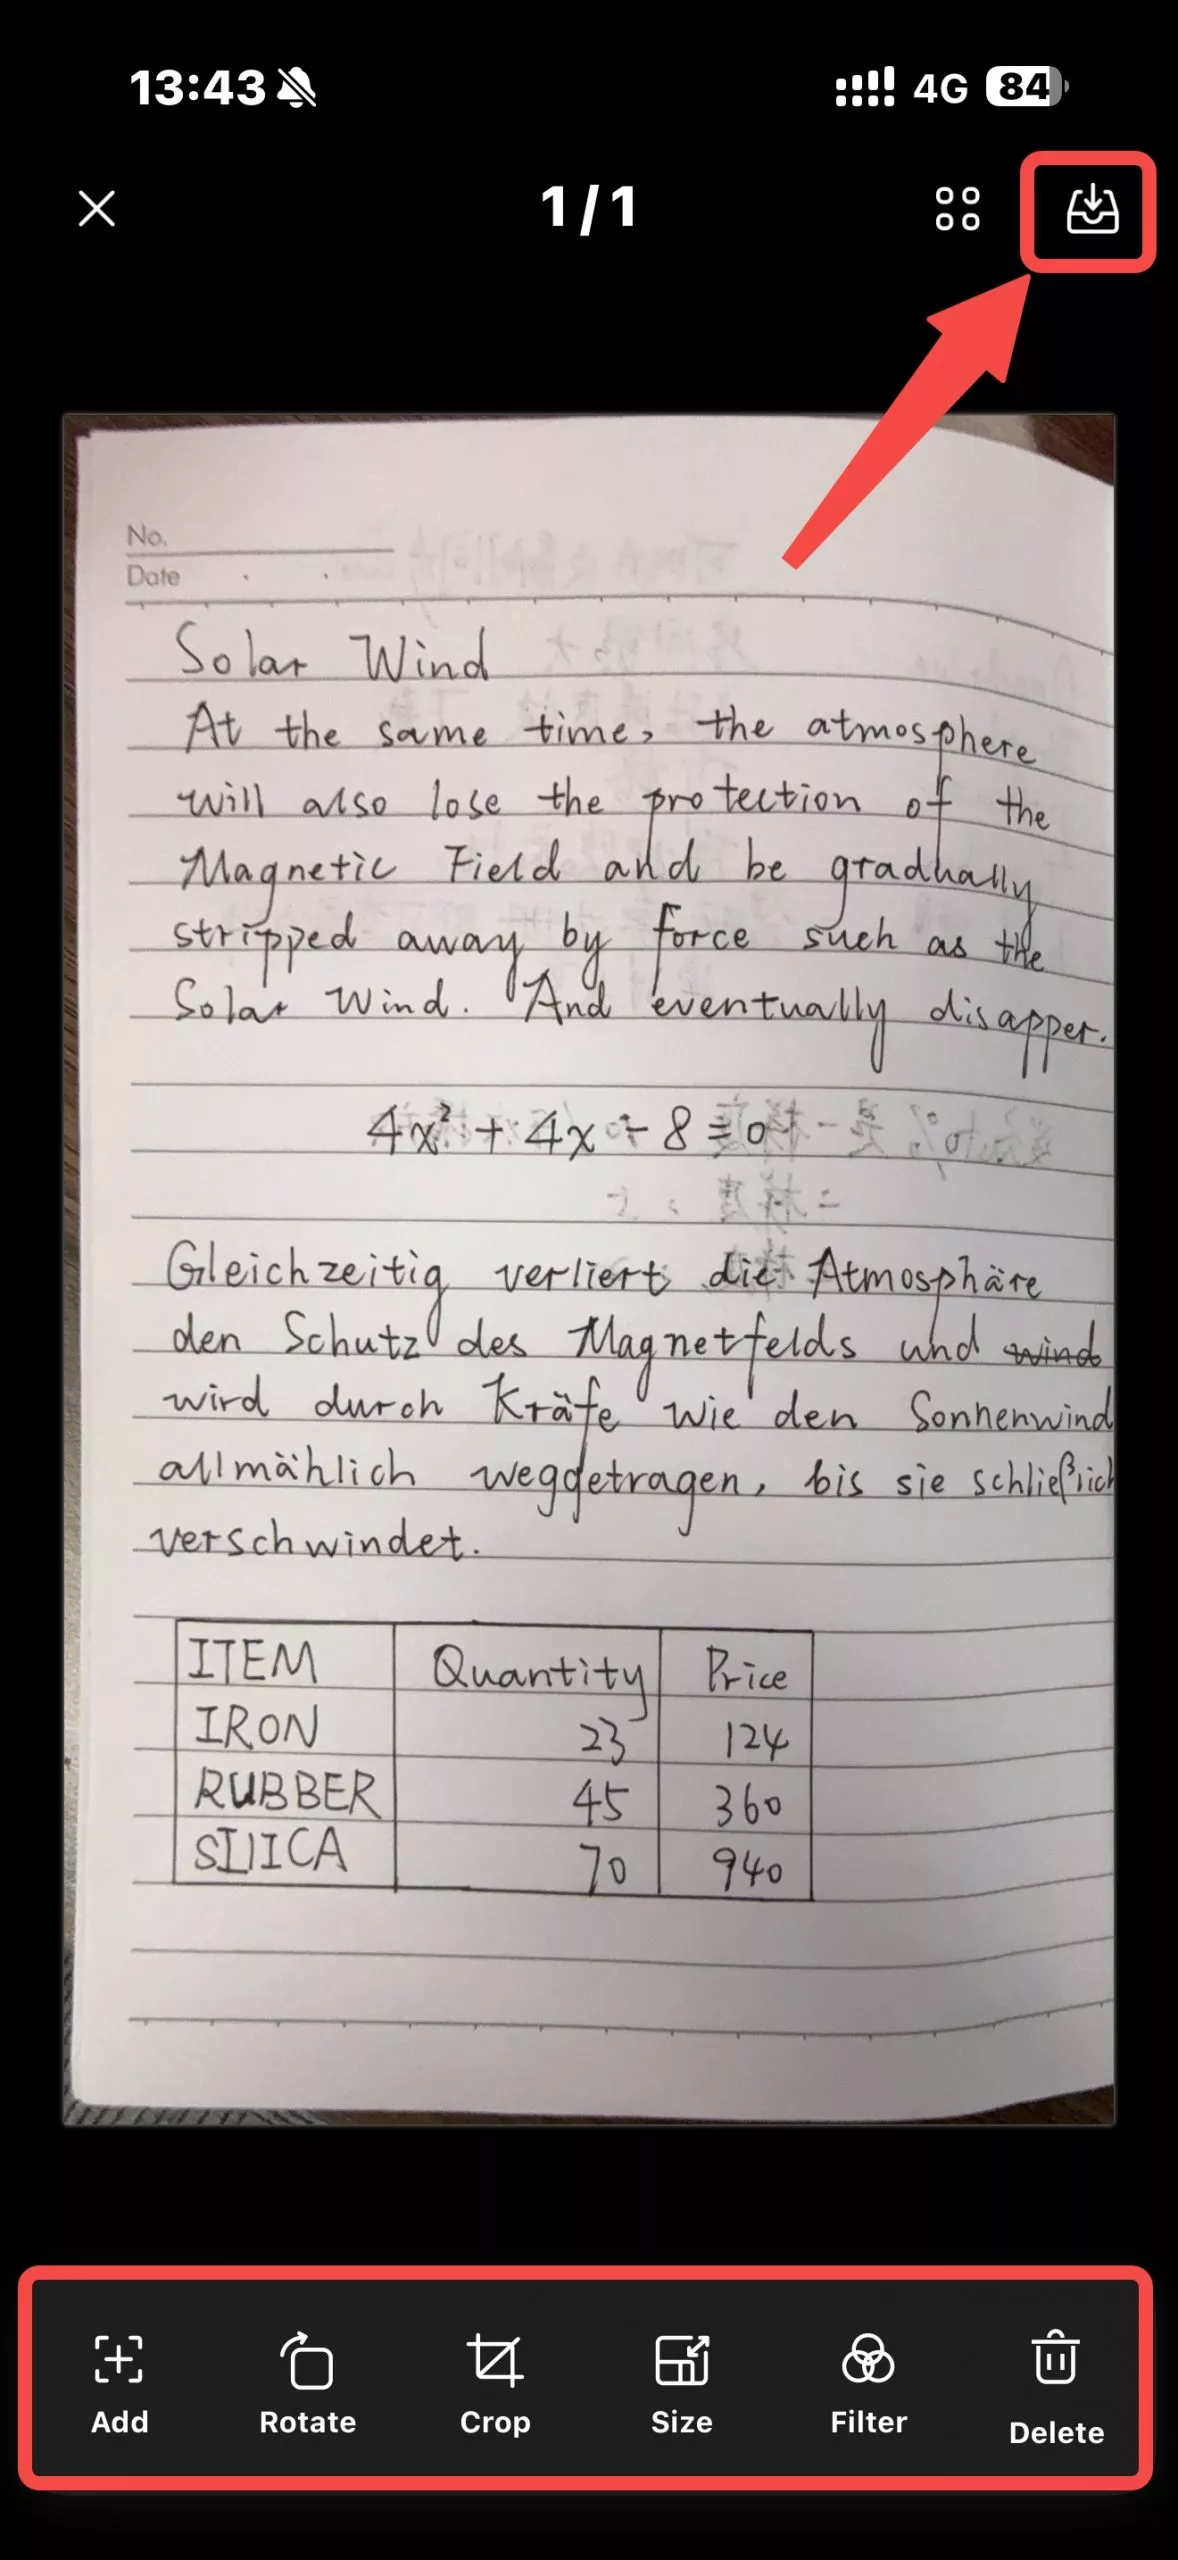 13:43 4G 84
1/1
No.
Date
Solar Wind
At the same time, the atmosphere
will also lose the protection of the
Magnetic Field and be gradually
stripped away by force such as the
Solar Wind. And eventually disapper.
4x² + 4x - 8 = 0
Gleichzeitig verliert die Atmosphäre
den Schutz des Magnetfelds und wind
wird durch Kräfe wie den Sonnenwind
allmählich weggetragen, bis sie schließlich
verschwindet.
ITEM Quantity Price
IRON 23 124
RUBBER 45 360
SILICA 70 940
Add Rotate Crop Size Filter Delete